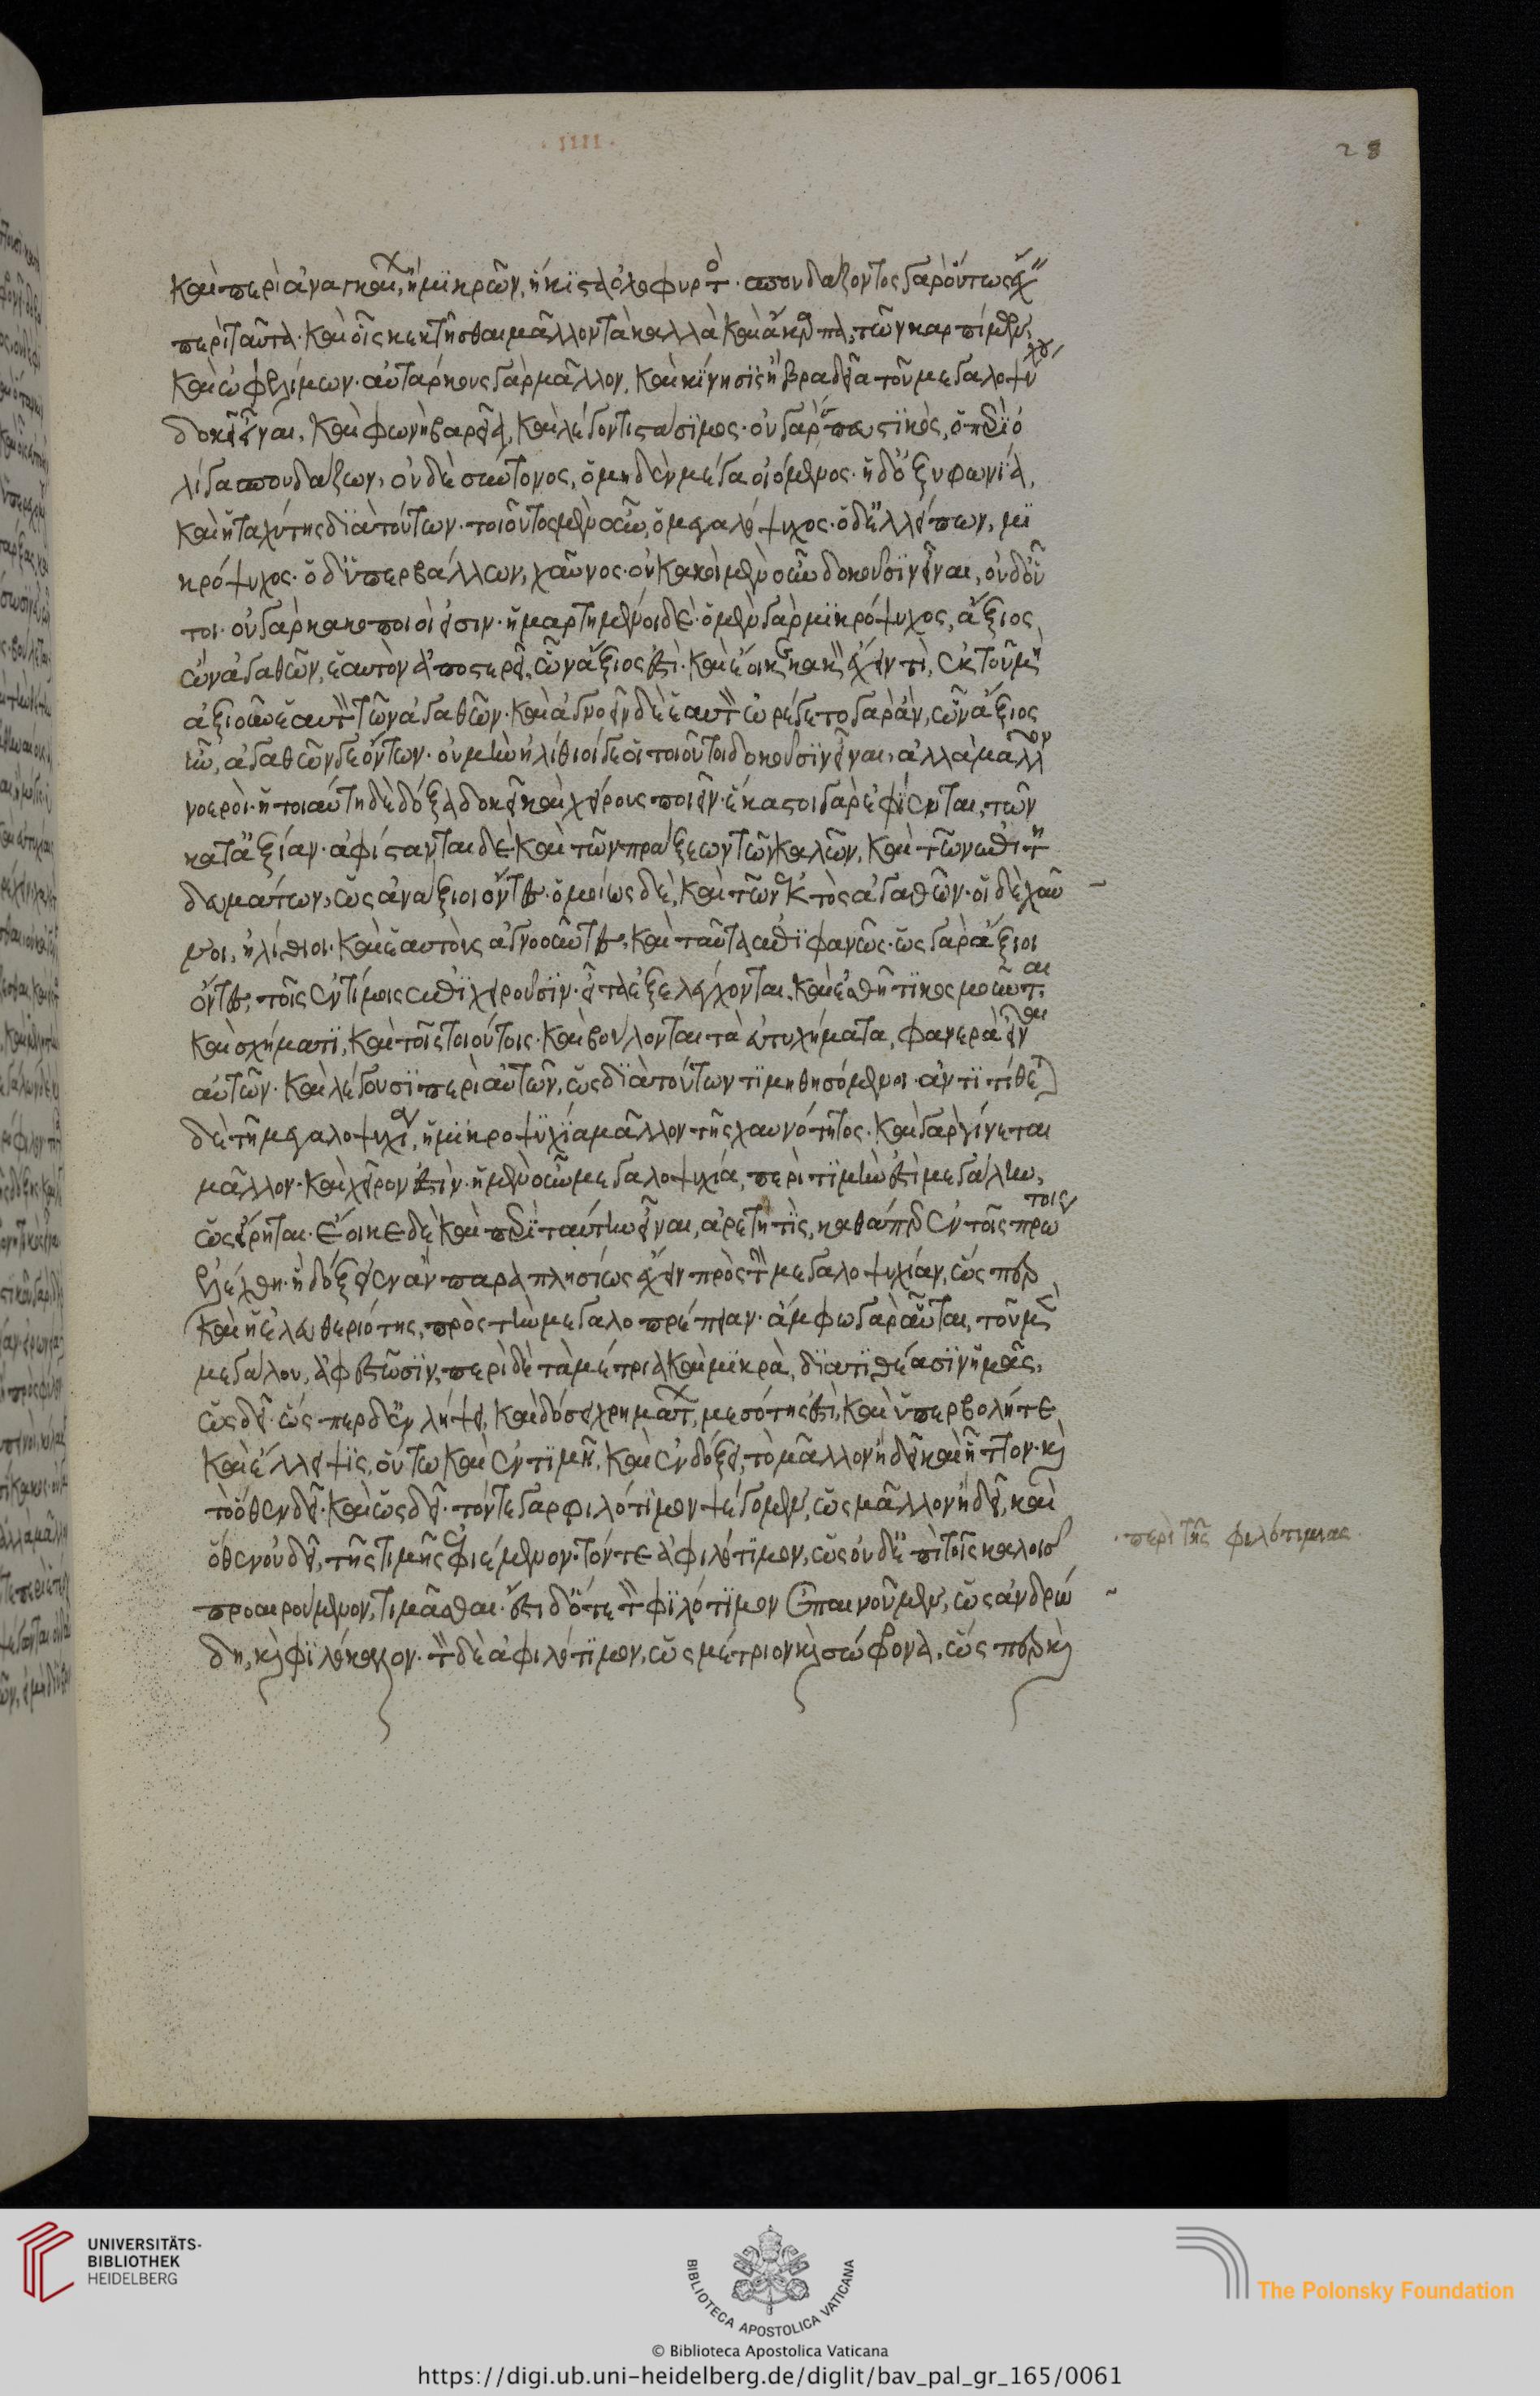 · IIII ·
28
καὶ περὶ ἀναγκαί(ων), ἢ μικρῶν, ἥκιστα ὀλοφυρτ(ικὸς) · σπουδάζοντος γὰρ οὕτως ἔχ(ειν)
περὶ ταῦτα · καὶ οἷος κεκτῆσθαι μᾶλλον τὰ καλλὰ καὶ ἄκαρπα, τῶν καρπίμων,
καὶ ὠφελίμων · αὐτάρκους γὰρ μᾶλλον, καὶ κίνησις ἡ βραδεῖα τοῦ μεγαλοψύχου
δοκεῖ εἶναι, καὶ φωνὴ βαρεῖα, καὶ λέξις στάσιμος · οὐ γὰρ σπευστικὸς, ὁ περὶ ὀ
λίγα σπουδάζων, οὐδὲ σύντονος, ὁ μηδὲν μέγα οἰόμενος · ἡ δ' ὀξυφωνία,
καὶ ἡ ταχύτης διὰ τούτων · τοιοῦτος μὲν οὖν, ὁ μεγαλόψυχος · ὁ δ' ἐλλείπων, μι
κρόψυχος · ὁ δ' ὑπερβάλλων, χαῦνος · οὐ κακοὶ μὲν οὖν δοκοῦσιν εἶναι, οὐδ' οὗ
τοι · οὐ γὰρ κακοποιοί εἰσιν · ἡμαρτημένοι δέ · ὁ μὲν γὰρ μικρόψυχος, ἄξιος
ὢν ἀγαθῶν, ἑαυτὸν ἀποστερεῖ, ὧν ἄξιός ἐστι · καὶ ἔοικε κακὸν ἔχειν τὶ, ἐκ τοῦ μὴ
ἀξιοῦν ἑαυτὸν τῶν ἀγαθῶν · καὶ ἀγνοεῖν δὲ ἑαυτὸν ὠρέγετο γὰρ ἂν, ὧν ἄξιος
ἦν, ἀγαθῶν γε ὄντων · οὐ μὴν ἠλίθιοί γε οἱ τοιοῦτοι δοκοῦσιν εἶναι, ἀλλὰ μᾶλλον
νοεροὶ · ἡ τοιαύτη δὲ δόξα δοκεῖ καὶ χείρους ποιεῖν · ἕκαστοι γὰρ ἐφίενται, τῶν
κατ' ἀξίαν · ἀφίστανται δὲ καὶ τῶν πράξεων τῶν καλῶν, καὶ τῶν ἐπιτη
δευμάτων, ὡς ἀνάξιοι ὄντες · ὁμοίως δὲ, καὶ τῶν ἐκτὸς ἀγαθῶν · οἱ δὲ χαῦ
νοι, ἠλίθιοι · καὶ ἑαυτοὺς ἀγνοοῦντες, καὶ ταῦτα ἐπιφανῶς · ὡς γὰρ ἄξιοι
ὄντες, τοῖς ἐντίμοις ἐπιχειροῦσιν · εἶτα ἐξελέγχονται, καὶ ἐσθῆτι κοσμοῦνται,
καὶ σχήματι, καὶ τοῖς τοιούτοις · καὶ βούλονται τὰ εὐτυχήματα, φανερὰ εἶναι
αὐτῶν · καὶ λέγουσι περὶ αὐτῶν, ὡς διὰ τούτων τιμηθησόμενοι · ἀντιτίθεται
δὲ τῆ μεγαλοψυχία, ἡ μικροψυχία μᾶλλον τῆς χαυνότητος · καὶ γὰρ γίνεται
μᾶλλον · καὶ χεῖρον ἐστίν · ἡ μὲν οὖν μεγαλοψυχία, περὶ τιμὴν ἐστὶ μεγάλην,
ὡς εἴρηται · ἔοικε δὲ καὶ περὶ ταύτην εἶναι, ἀρετή τις, καθάπερ ἐν τοῖς πρώτοις
ἐλέχθη · ἣ δόξειεν ἂν παραπλησίως ἔχειν πρὸς τὴν μεγαλοψυχίαν, ὥσπερ
καὶ ἡ ἐλευθεριότης, πρὸς τὴν μεγαλοπρέπειαν · ἄμφω γὰρ αὗται, τοῦ μὲν
μεγάλου, ἀφεστῶσιν, περὶ δὲ τὰ μέτρια καὶ μικρὰ, διατιθέασιν ἡμᾶς,
ὡς δεῖ · ὥσπερ δ' ἐν λήψει, καὶ δόσει χρημάτων, μεσότης ἐστὶ, καὶ ὑπερβολή τε
καὶ ἔλλειψις, οὕτω καὶ ἐν τιμῆ, καὶ ἐν δόξει, τὸ μᾶλλον ἢ δεῖ καὶ ἧττον · καὶ
τὸ ὅθεν δεῖ · καὶ ὡς δεῖ · τόν τε γὰρ φιλότιμον ψέγομεν, ὡς μᾶλλον ἢ δεῖ, καὶ
ὅθεν οὐ δεῖ, τῆς τιμῆς ἐφιέμενον · τόν τε ἀφιλότιμον, ὡς οὐδ' ἐπὶ τοῖς καλοῖς
προαιρούμενον, τιμᾶσθαι · ἔστι δ' ὅτε τὸν φιλότιμον ἐπαινοῦμεν, ὡς ἀνδρώ
δη, καὶ φιλόκαλον · τὸν δὲ ἀφιλότιμον, ὡς μέτριον καὶ σώφρονα, ὥσπερ καὶ
· περὶ τῆς φιλοτιμίας ·
UNIVERSITÄTS-
BIBLIOTHEK
HEIDELBERG
BIBLIOTECA APOSTOLICA VATICANA
The Polonsky Foundation
© Biblioteca Apostolica Vaticana
https://digi.ub.uni-heidelberg.de/diglit/bav_pal_gr_165/0061